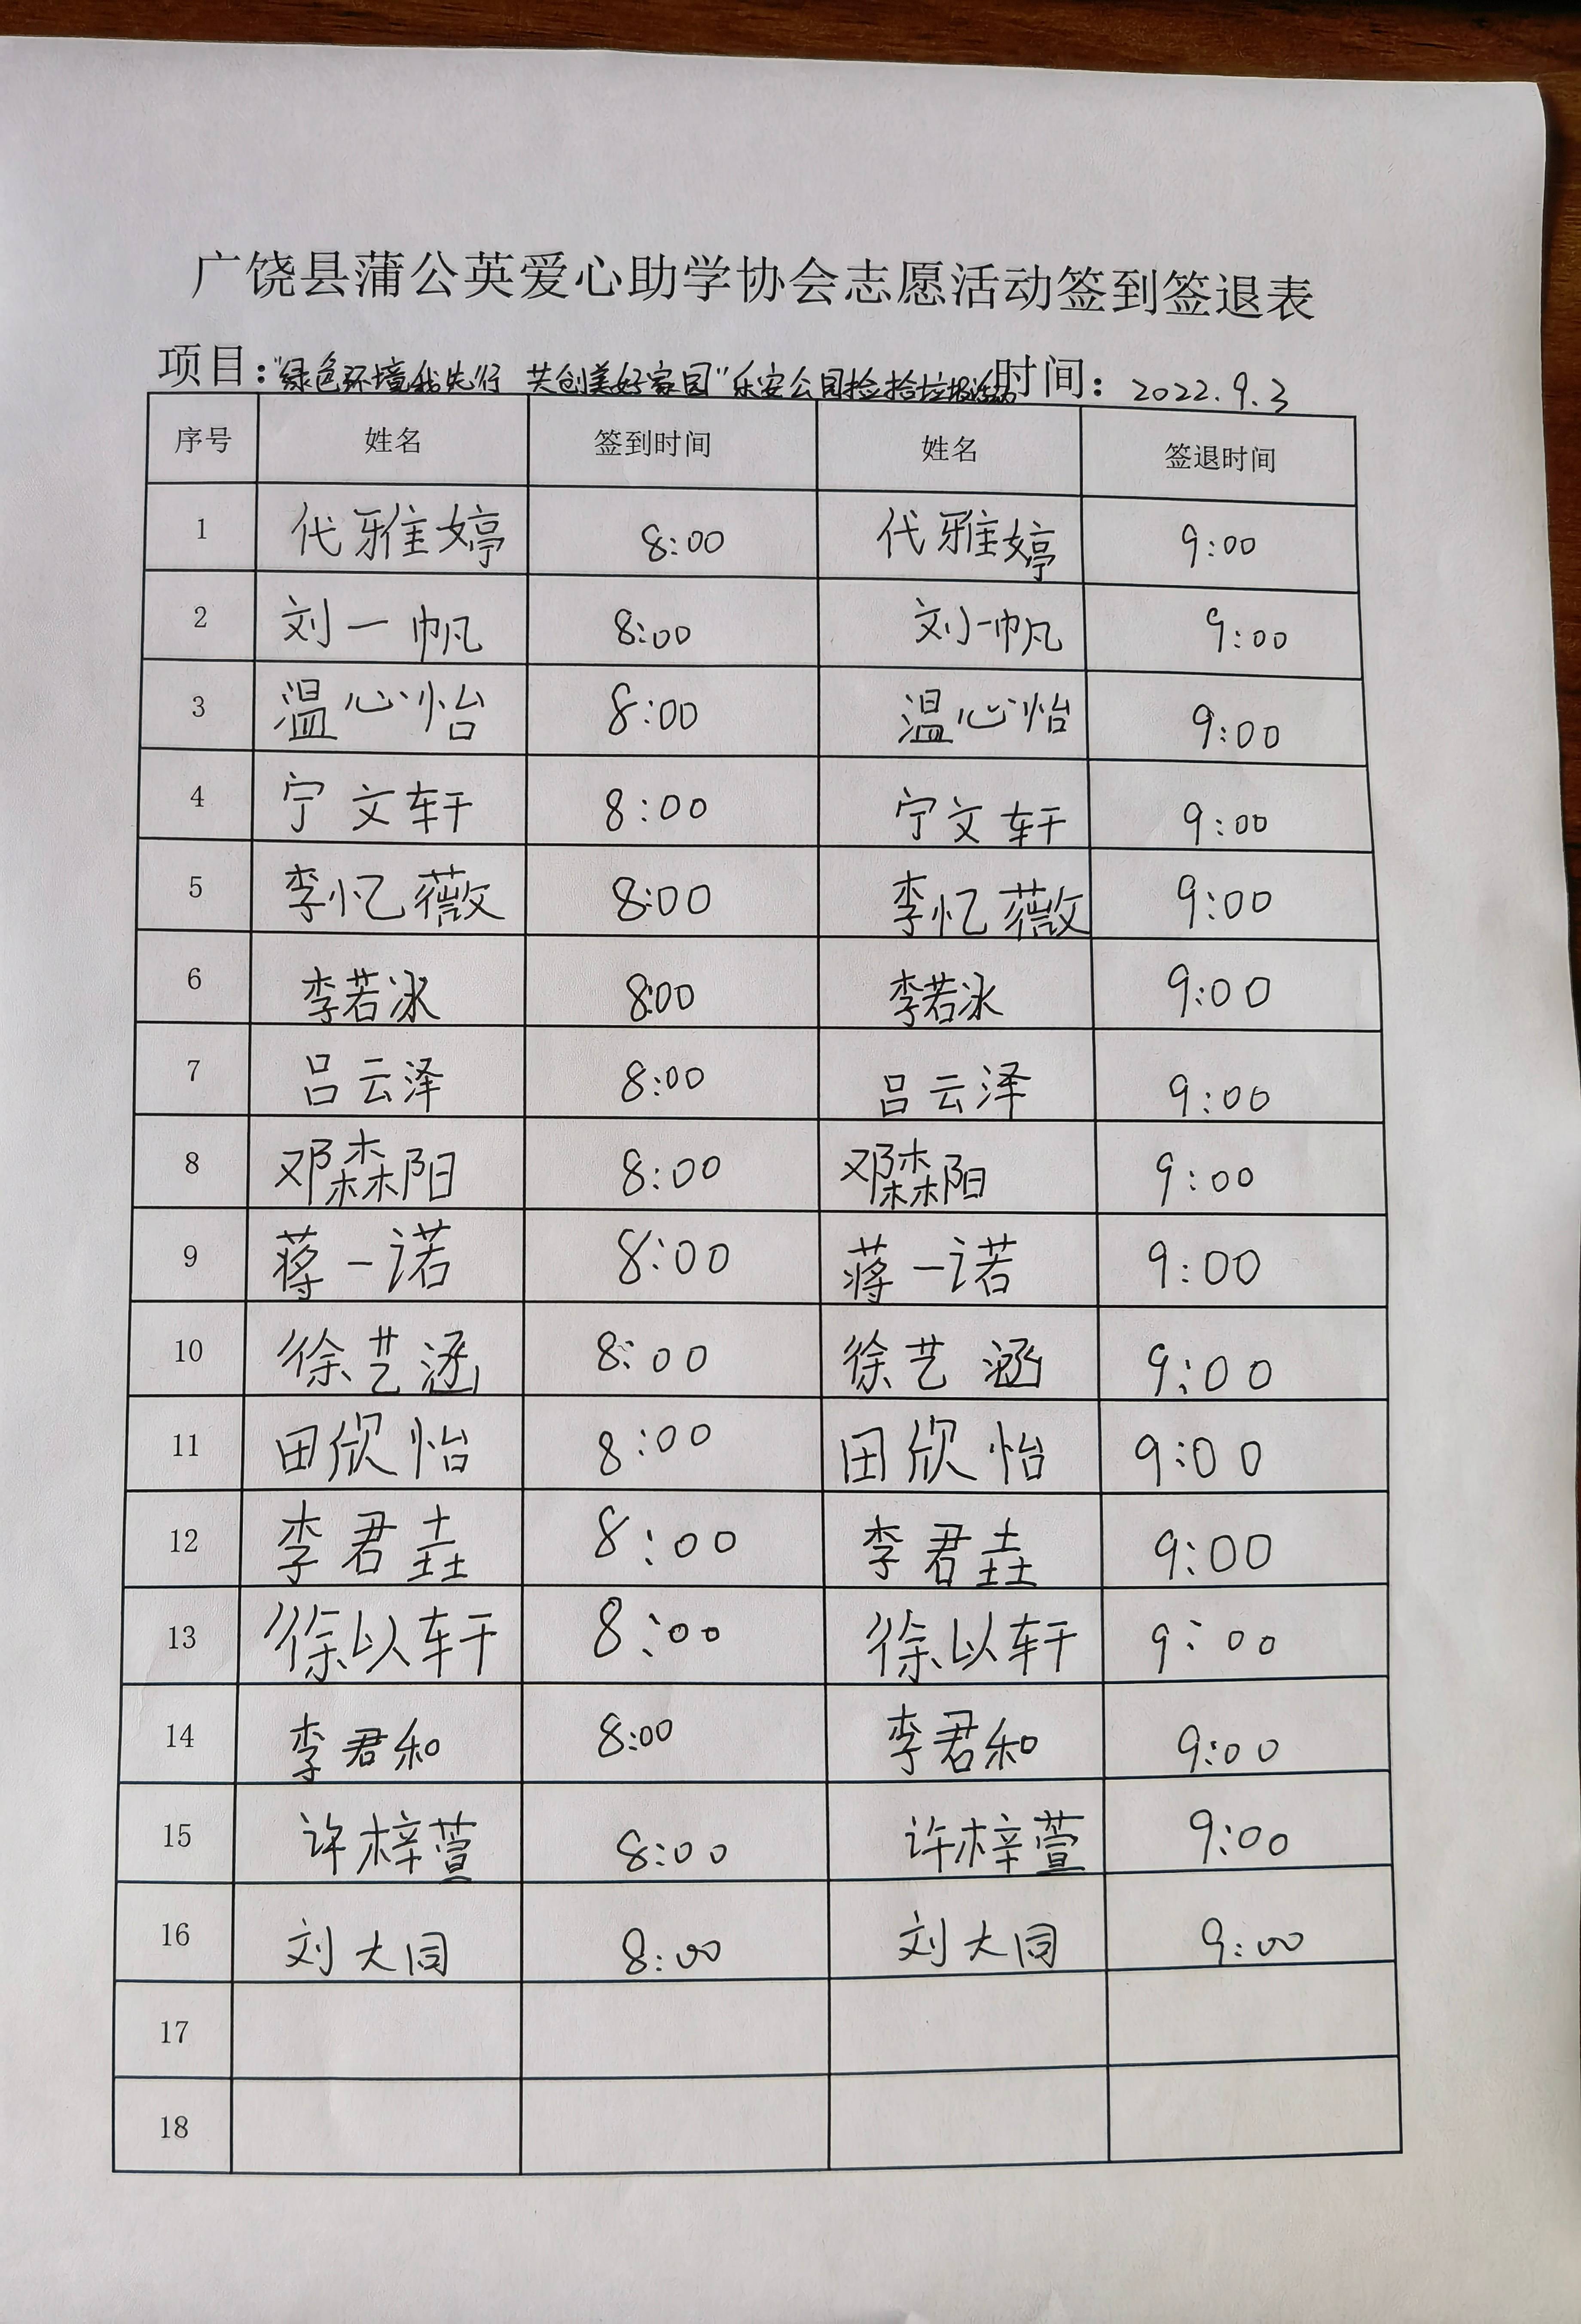 广饶县蒲公英爱心助学协会志愿活动签到签退表
项目："绿色环境我先行 共创美好家园"乐安公园捡拾垃圾活动 时间：2022.9.3
序号 姓名 签到时间 姓名 签退时间
1 代雅婷 8:00 代雅婷 9:00
2 刘一帆 8:00 刘一帆 9:00
3 温心怡 8:00 温心怡 9:00
4 宁文轩 8:00 宁文轩 9:00
5 李忆薇 8:00 李忆薇 9:00
6 李若冰 8:00 李若冰 9:00
7 吕云泽 8:00 吕云泽 9:00
8 邓森阳 8:00 邓森阳 9:00
9 蒋一诺 8:00 蒋一诺 9:00
10 徐艺涵 8:00 徐艺涵 9:00
11 田欣怡 8:00 田欣怡 9:00
12 李君垚 8:00 李君垚 9:00
13 徐以轩 8:00 徐以轩 9:00
14 李君和 8:00 李君和 9:00
15 许梓萱 8:00 许梓萱 9:00
16 刘大同 8:00 刘大同 9:00
17
18